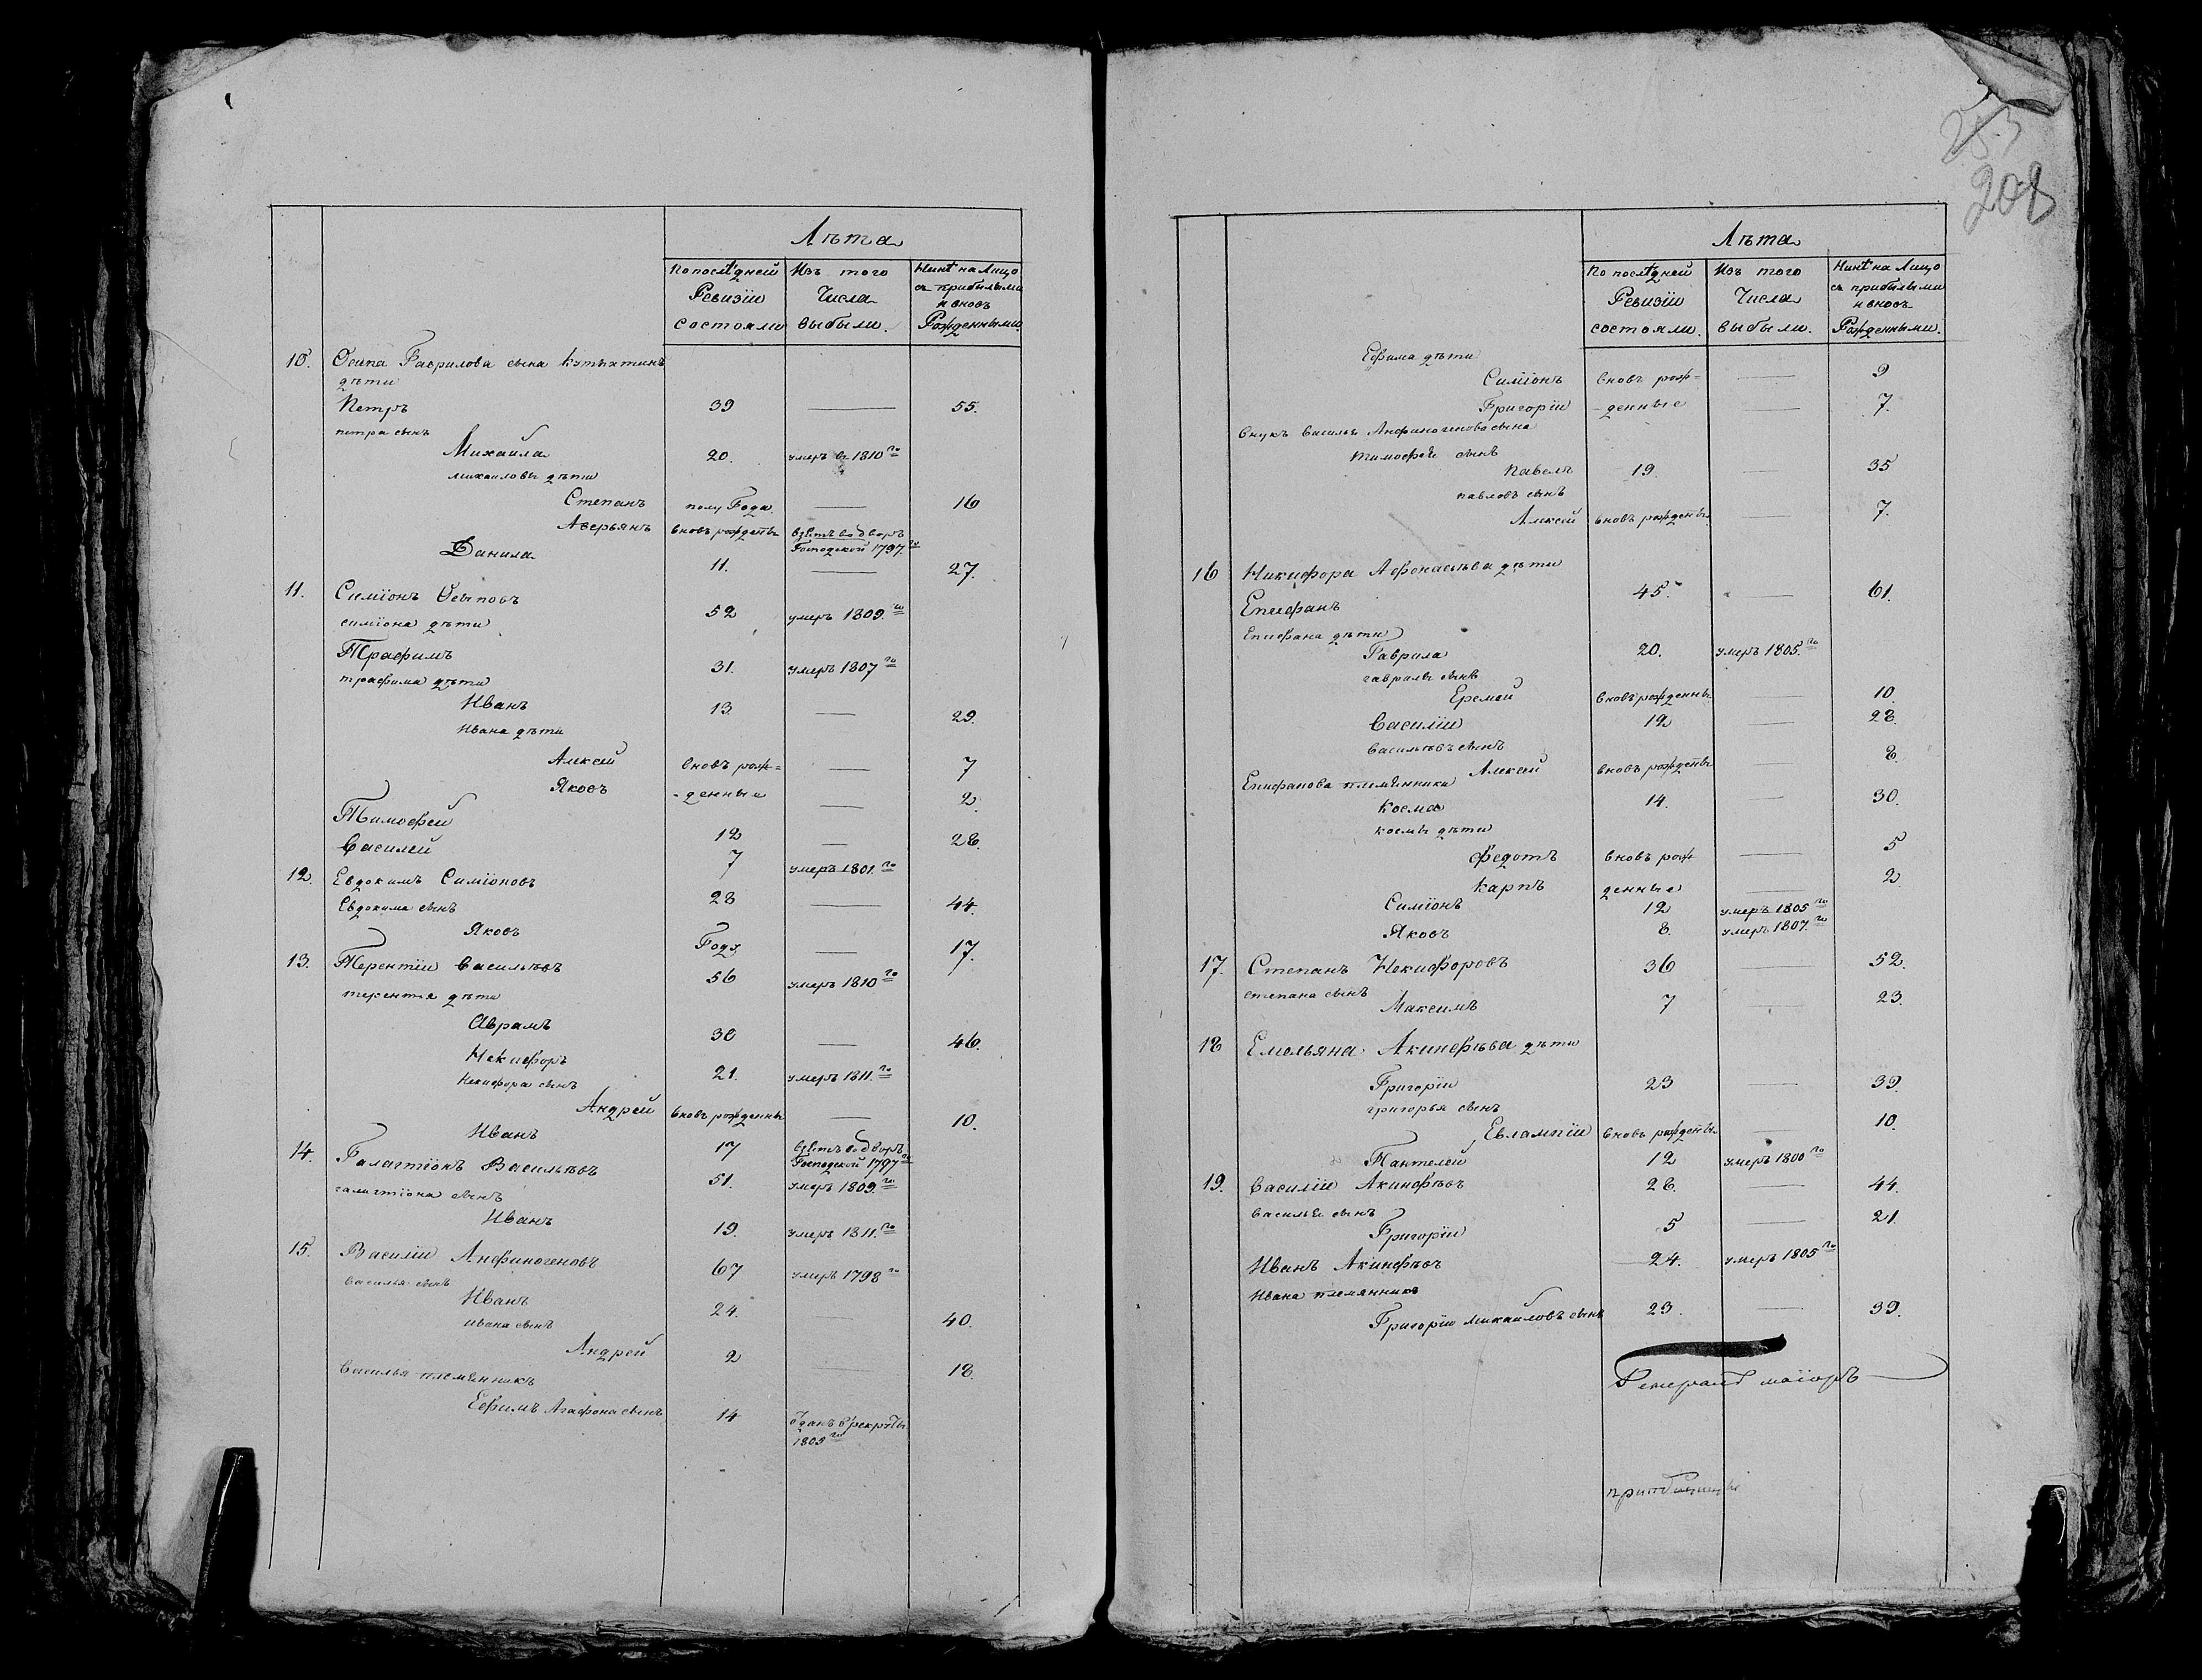 Лѣта
По послѣдней Ревизіи состояли
Изъ того Числа выбыли.
Нынѣ на Лицо съ прибылыми и вновь Рожденными
10. Осипа Гаврилова сына
дѣти
Петръ 39 — 55.
петра сынъ
Михайла 20. умеръ въ 1810го
михаиловы дѣти
Степанъ полу Года — 16
Аверьянъ вновь рожденъ взятъ во дворъ Господской 1797го
Данила 11. — 27.
11. Симіонъ Осыповъ 52 умеръ 1809.го
симіона дѣти
Трафимъ 31. умеръ 1807го
трафима дѣти
Иванъ 13. — 29.
Ивана дѣти
Алксѣй вновь рож= — 7
Яковъ -денные — 2.
Тимофей 12 — 28.
Василей 7 умеръ 1801.го
12. Евдокимъ Симіоновъ 28 — 44.
Евдокима сынъ
Яковъ Году — 17.
13. Терентіи Васильѣвъ 56 умеръ 1810го
терентья дѣти
Аврамъ 30 — 46.
Некифоръ 21. умеръ 1811.го
Некифора сынъ
Андрей вновь рожденны — 10.
Иванъ 17 взятъ во дворъ Господской 1797го
14. Галагтіонъ Васильѣвъ 51. умеръ 1809.го
галагтіона сынъ
Иванъ 19. умеръ 1811.го
15. Василіи Анфиногеновъ 67 умеръ 1798го
Василья сынъ
Иванъ 24. — 40.
ивана сынъ
Андрей 2 — 18.
Василья племянникъ
Ефимъ Агафона сынъ 14 отданъ в рекруты
1805го
208
Лѣта
По послѣдней Ревизіи состояли.
Изъ того Числа выбыли.
Нынѣ на Лицо съ прибылыми и вновь Рожденными.
Ефима дѣти
Симіонъ вновь рож= — 9
Григоріи -денные — 7.
Внукъ Василья Анфиногенова сына
тимофея сынъ
Павелъ 19. — 35
павловъ сынъ
Алксѣй вновь рожденъ — 7.
16 Никифора Афонасьѣва дѣти
Епифанъ 45. — 61.
Епифана дѣти
Гаврила 20. умеръ 1805.го
гаврилы сынъ
Еремей вновь рожденны — 10
Василіи 12 — 28.
Васильѣвъ сынъ
Алексѣй вновь рожденъ — 8.
Епифанова племянники
Косма 14. — 30.
космы дѣти
Федотъ вновь рож — 5
Карпъ денные — 2
Симіонъ 12 умеръ 1805го
Яковъ 8. умеръ 1807.го
17. Степанъ Некифоровъ 36 — 52.
степана сынъ
Максимъ 7 — 23.
18 Емельяна Акинфѣва дѣти
Григоріи 23 — 39
григорья сынъ
Евлампіи вновь рожденъ — 10.
Пантелей 12 умеръ 1800го
19. Василіи Акинфѣвъ 28. — 44.
Василья сынъ
Григоріи 5 — 21.
Иванъ Акинфѣвъ 24. умеръ 1805го
Ивана племянникъ
Григоріи михайловъ сынъ 23. — 39.
Генералъ маіоръ